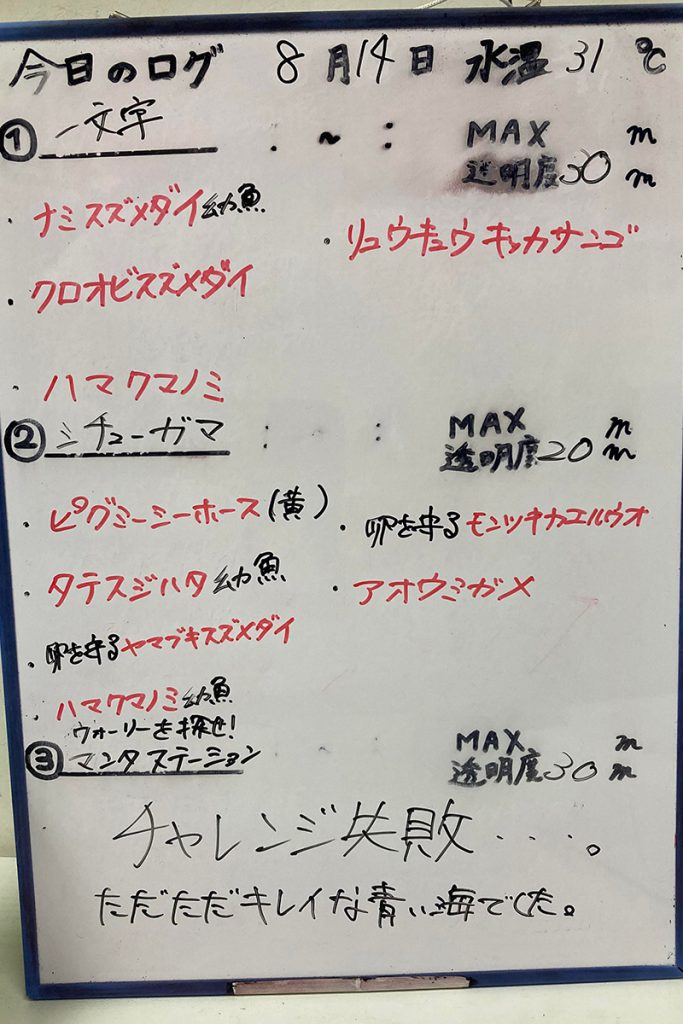 今日のログ 8月14日 水温 31 ℃
① 一文字 . ~ : MAX m
透明度30 m
・ナミスズメダイ幼魚
・リュウキュウキッカサンゴ
・クロオビスズメダイ
・ハマクマノミ
② ミチューガマ : : MAX m
透明度20 m
・ピグミーシーホース(黄)
・卵を守るモンツキカエルウオ
・タテスジハタ幼魚
・アオウミガメ
・卵を守るヤマブキスズメダイ
・ハマクマノミ幼魚
ウォーリーを探せ!
③ マンタステーション MAX m
透明度30 m
チャレンジ失敗・・・・。
ただただキレイな青い海でした。